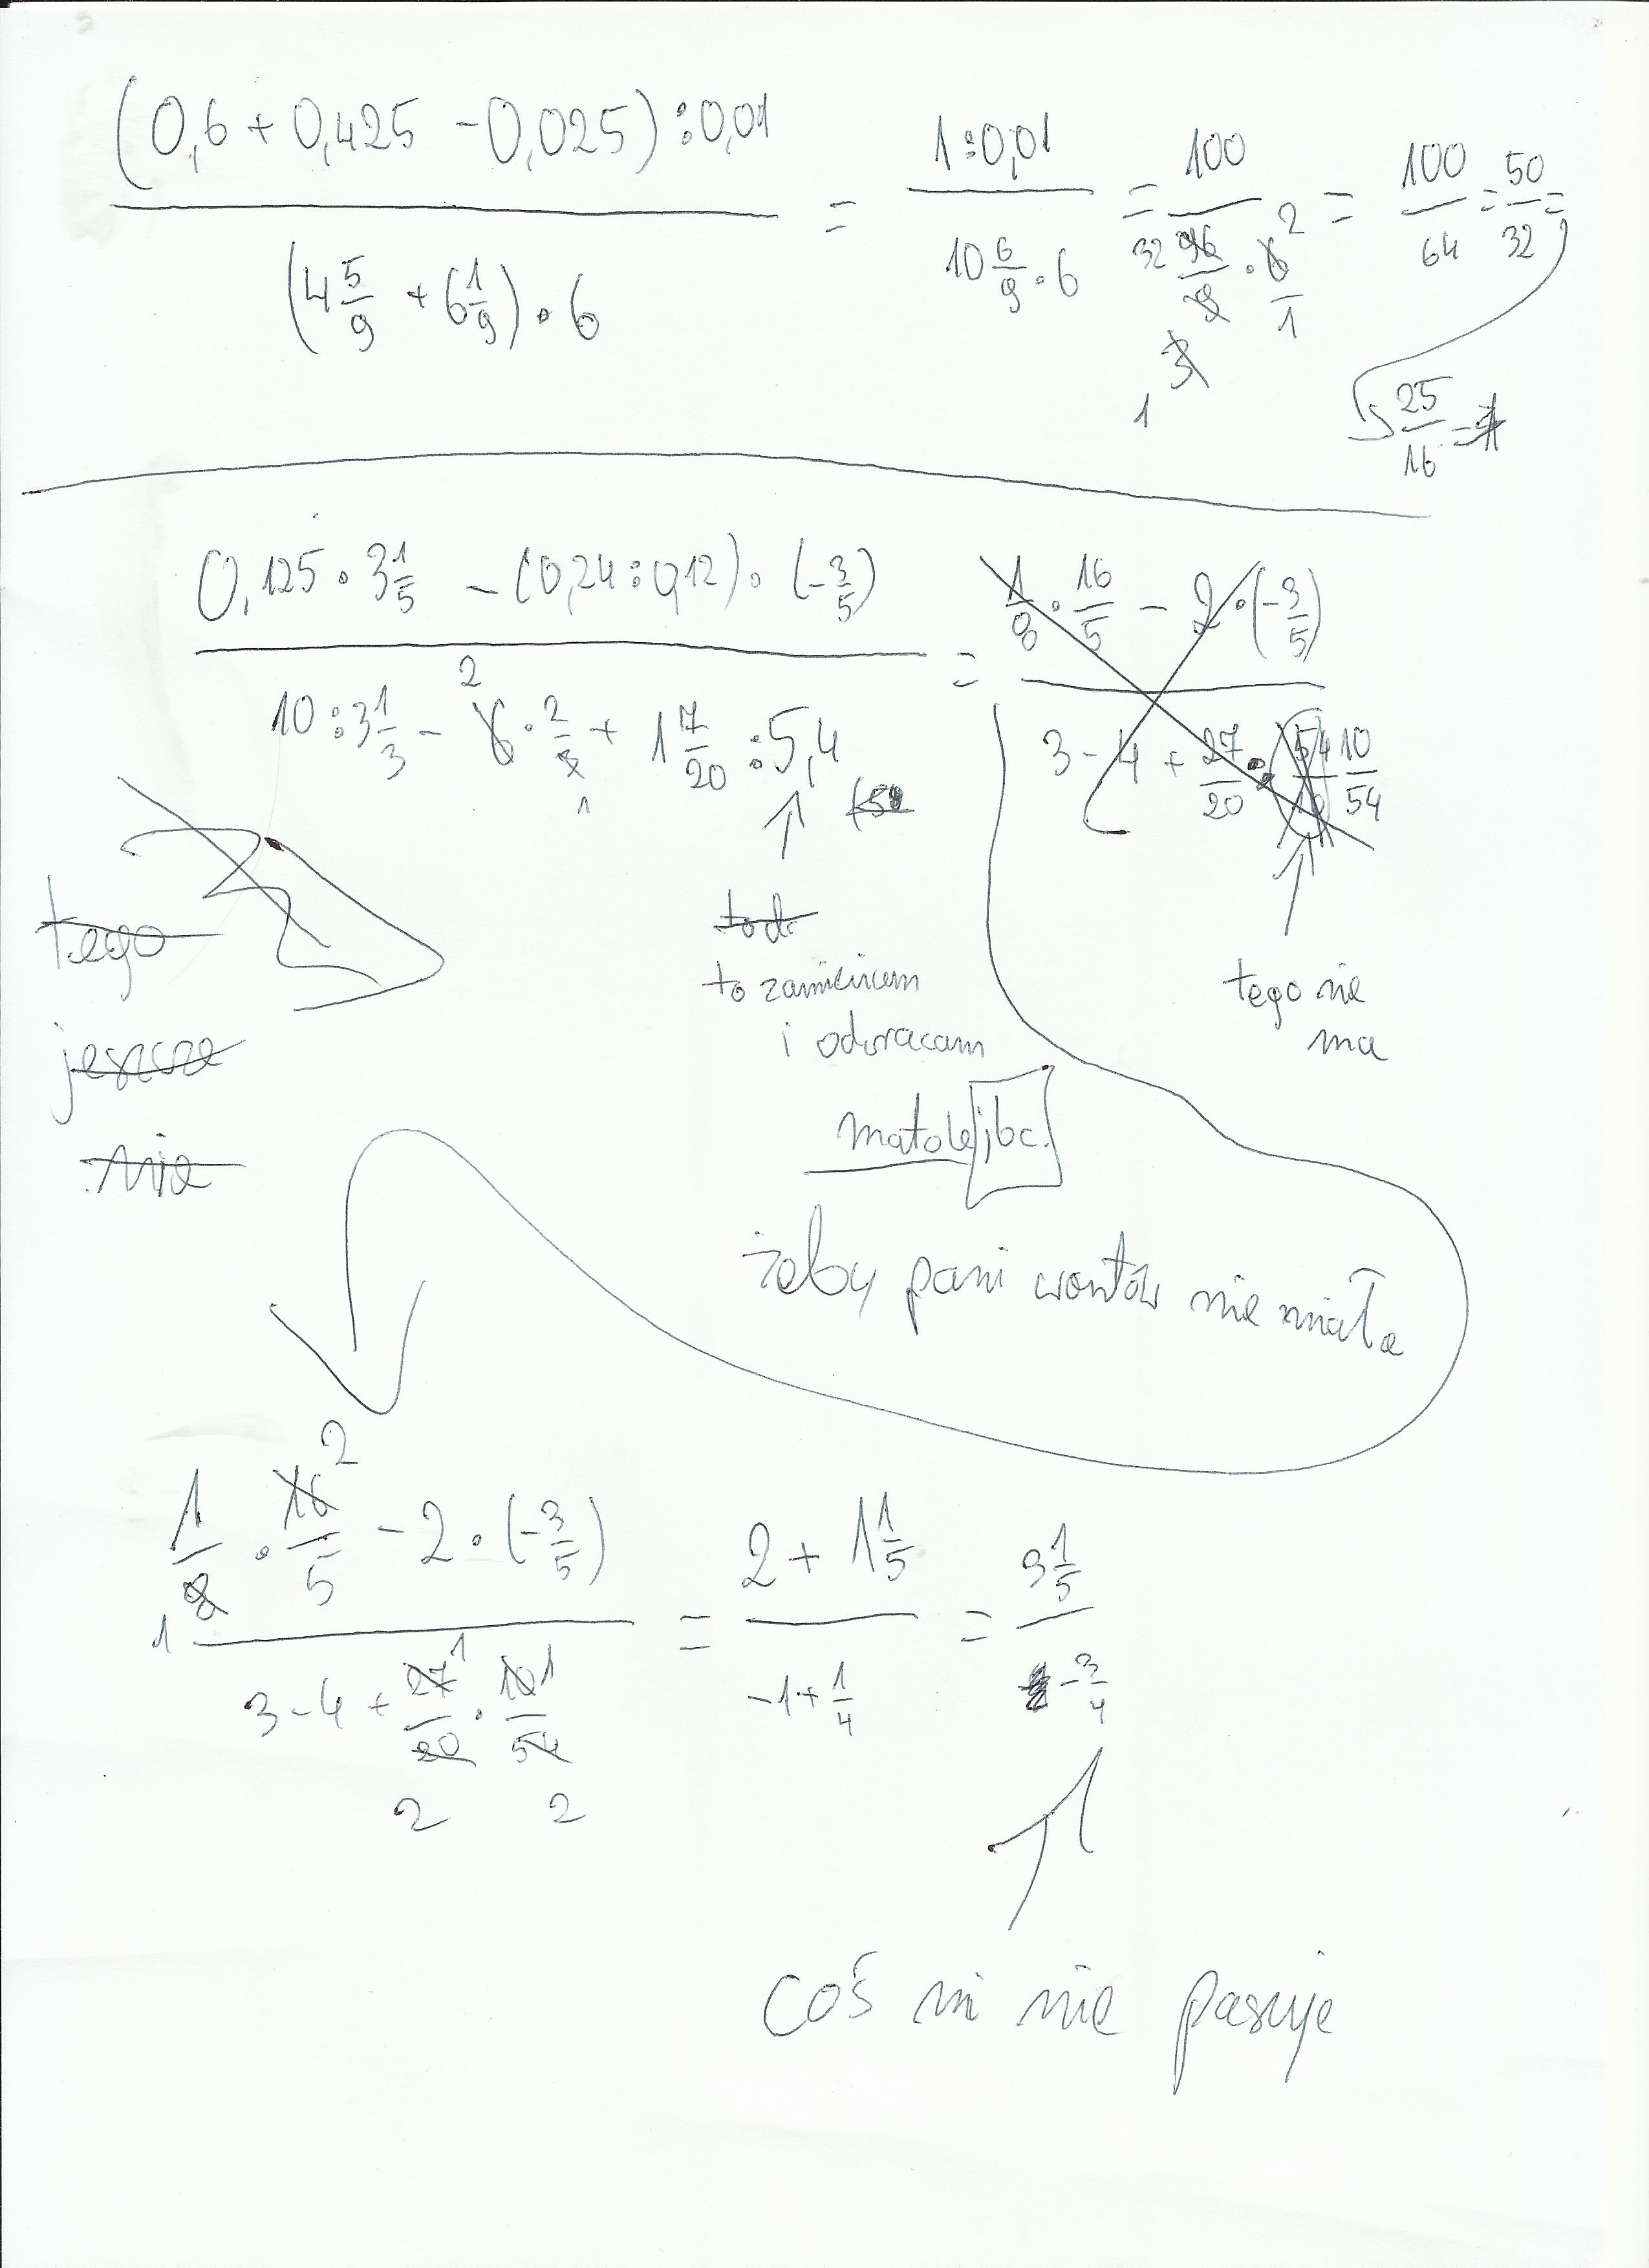 (0,6 + 0,425 - 0,025) : 0,01 / (4 5/9 + 6 1/9) · 6 = 1 : 0,01 / 10 6/9 · 6 = 100 / 96/9 · 6/1 = 100/64 = 50/32 =
32 2
3
1
25/16 =
0,125 · 3 1/5 - (0,24 : 0,12) · (-3/5) / 10 : 3 1/3 - 6 · 2/3 + 1 7/20 : 5,4 = 1/8 · 16/5 - 2 · (-3/5) / 3 - 4 + 27/20 · 10/54
2
1
tego
jeszcze
nie
to zamieniam
i odwracam
tego nie
ma
matole jbc.
żeby pani wontów nie miała
1/8 · 16/5 - 2 · (-3/5) / 3 - 4 + 27/20 · 10/54 = 2 + 1 1/5 / -1 + 1/4 = 3 1/5 / -3/4
2
1
1 1
2 2
coś mi nie pasuje